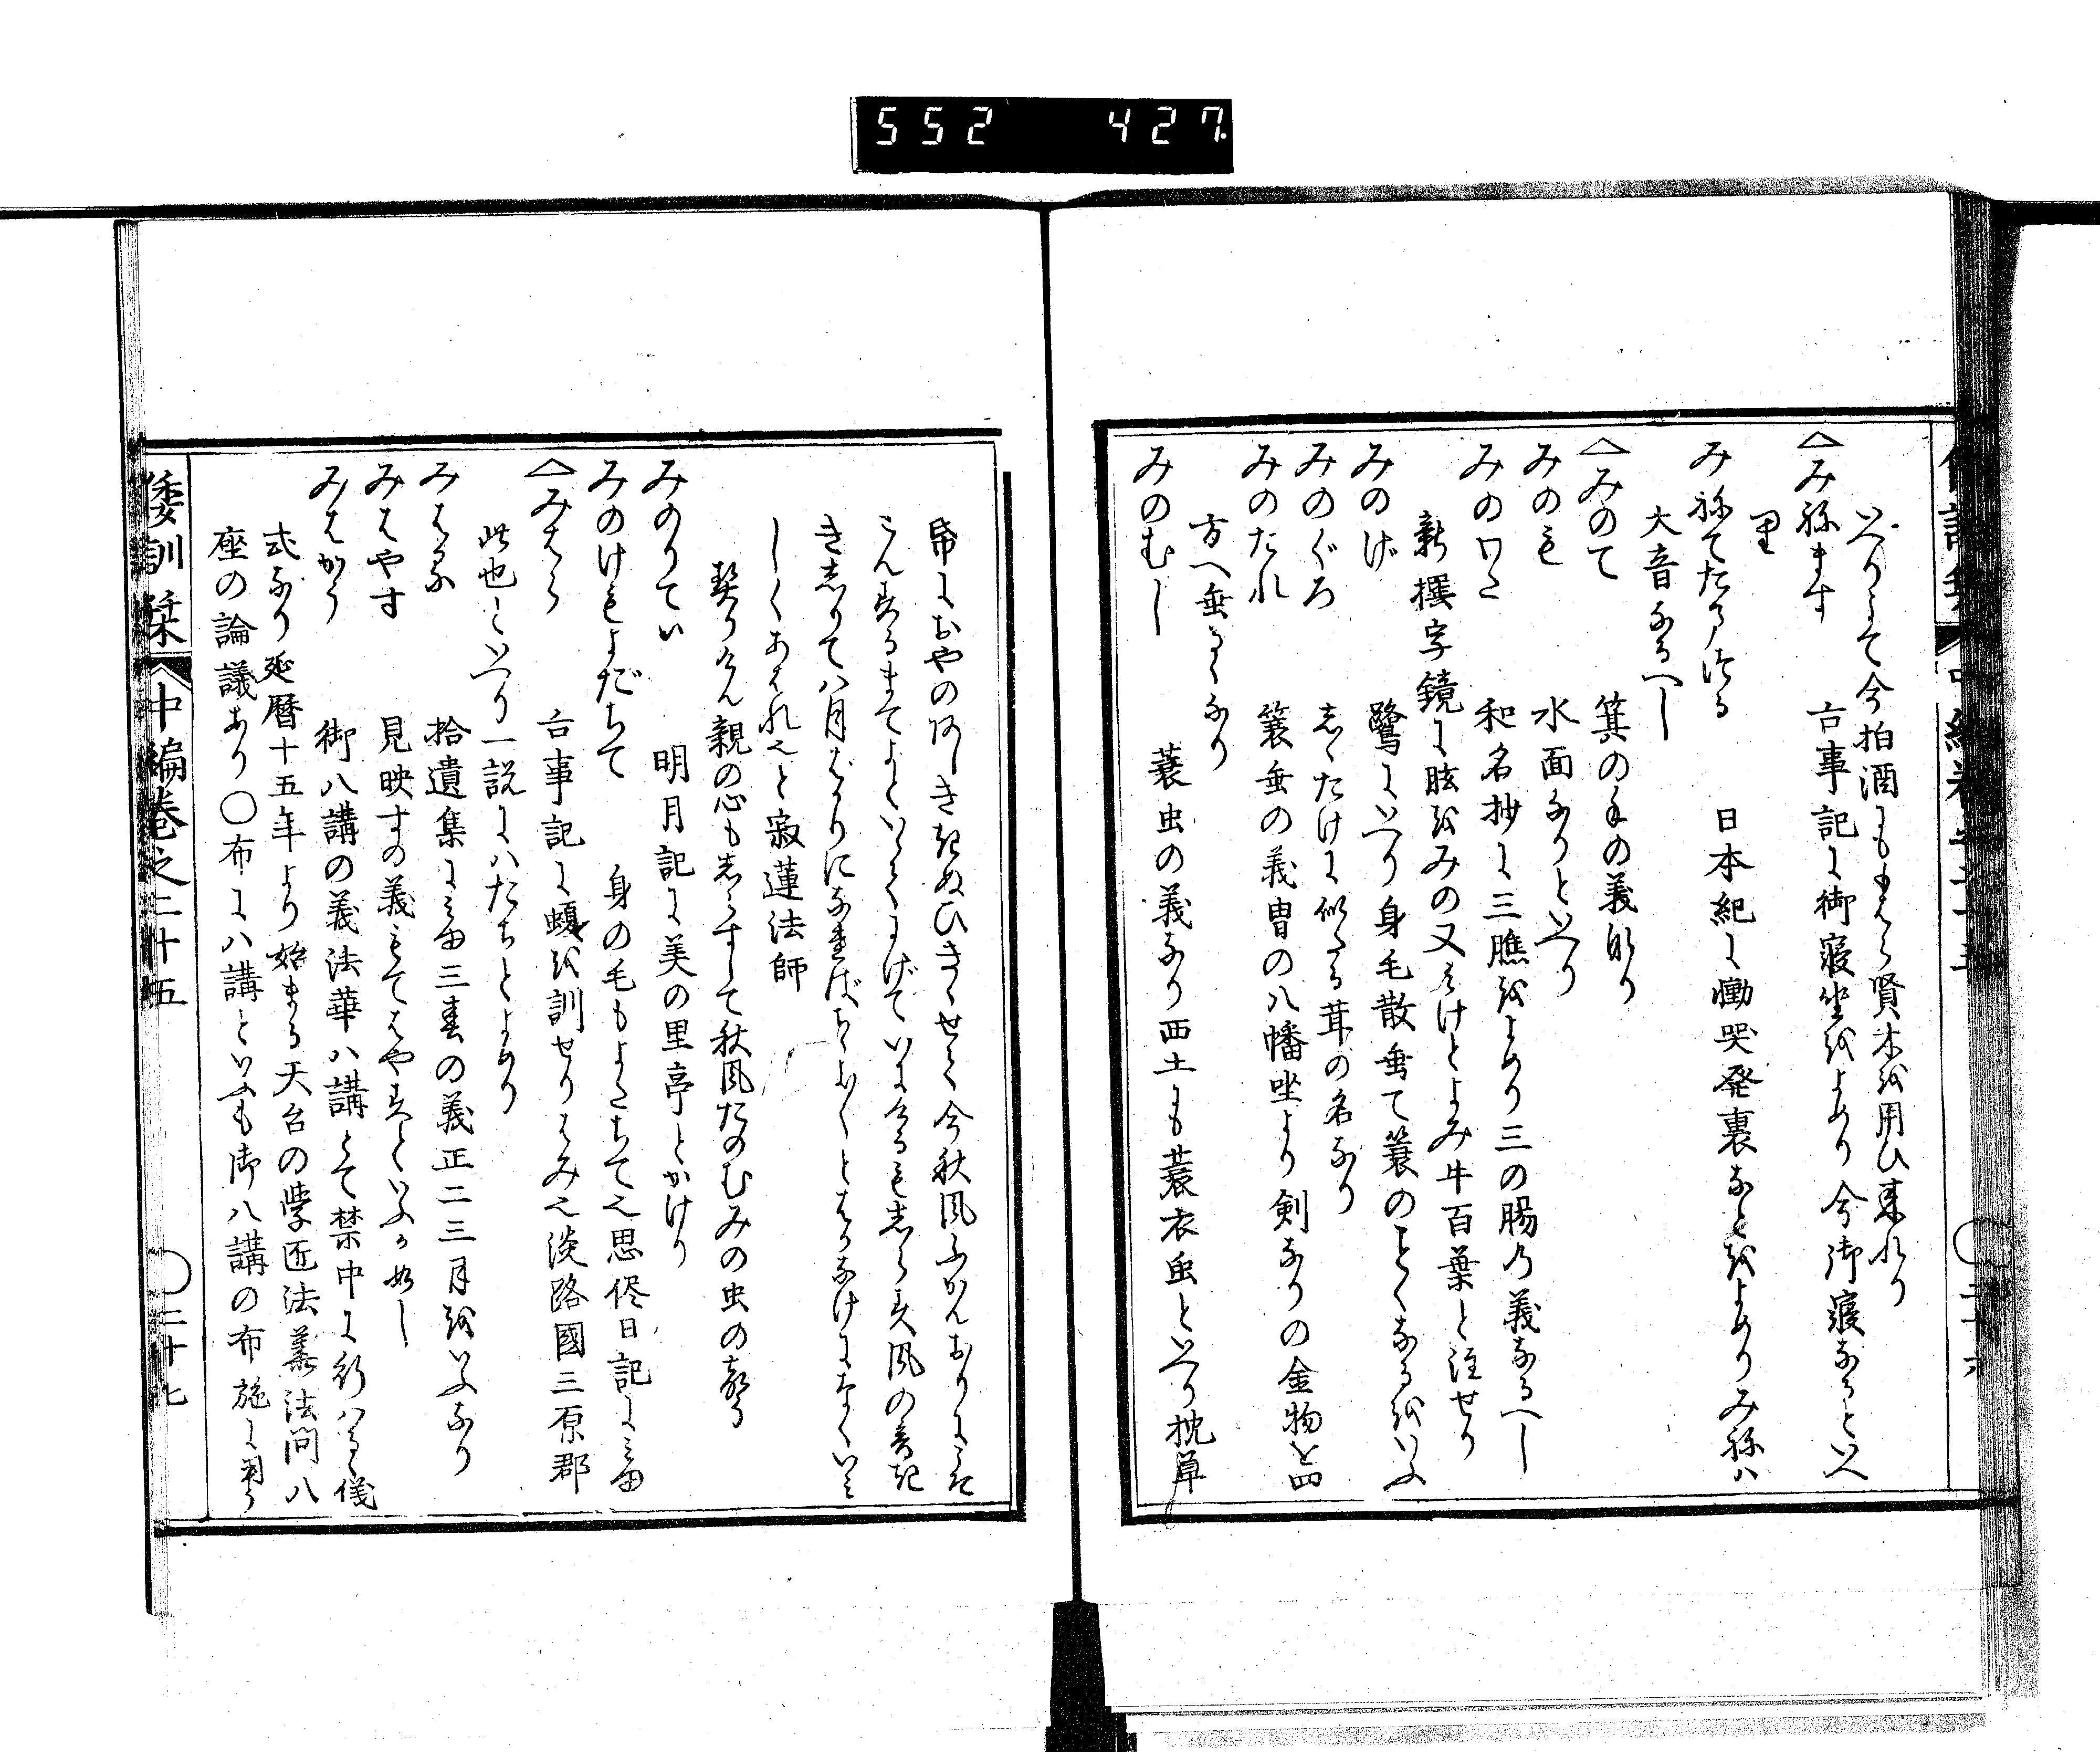 552 427
いへりよて今拍酒にももはら賢木を用ひ来れり
△みねます 古事記に御寝坐をよめり今御寝なるといへ
里
みねてたてまつる 日本紀に慟哭発哀などをよめりみねハ
大音なるへし
△みのて 箕の手の義なり
みのも 水面なりといへり
みのわた 和名抄に三膲をよめり三の腸乃義なるへし
新撰字鏡に胘をみの又みけとよみ牛百葉と注せり
みのげ 鷺にいへり身毛散垂て簑のことくなるをいふ
みのぐろ しゝたけに似たる茸の名なり
みのたれ 簑垂の義冑の八幡坐より剣なりの金物を四
方へ垂るゝなり
みのむし 蓑虫の義なり西土にも蓑衣虫といへり枕草
帋におやのあしききぬひききせて今秋風ふかんおりにそこ
こんするまてよといひてにげていにけるもしらす風の音き
きしりて八月はかりになればちゝよちゝよとはかなけになくいみ
しくあはれ也と寂蓮法師
契りけん親の心もしらすして秋風たのむみの虫の声
みのりてい 明月記に美の里亭とかけり
みのけもよだちて 身の毛もよたちて也思侭日記にみゆ
△みはら 古事記に蝮を訓せりはみ也淡路國三原郡
此也といへり一説にハたちとよめり
みはる 拾遺集にみゆ三春の義正二三月をいふなり
みはやす 見映すの義もてはやすといふか如し
みはかう 御八講の義法華八講とて禁中に行ハるゝ儀
式なり延暦十五年より始まる天台の学匠法華法問八
座の論議あり○布に八講といふも御八講の布施に用う
倭訓栞 中編巻之二十五 ○二十七